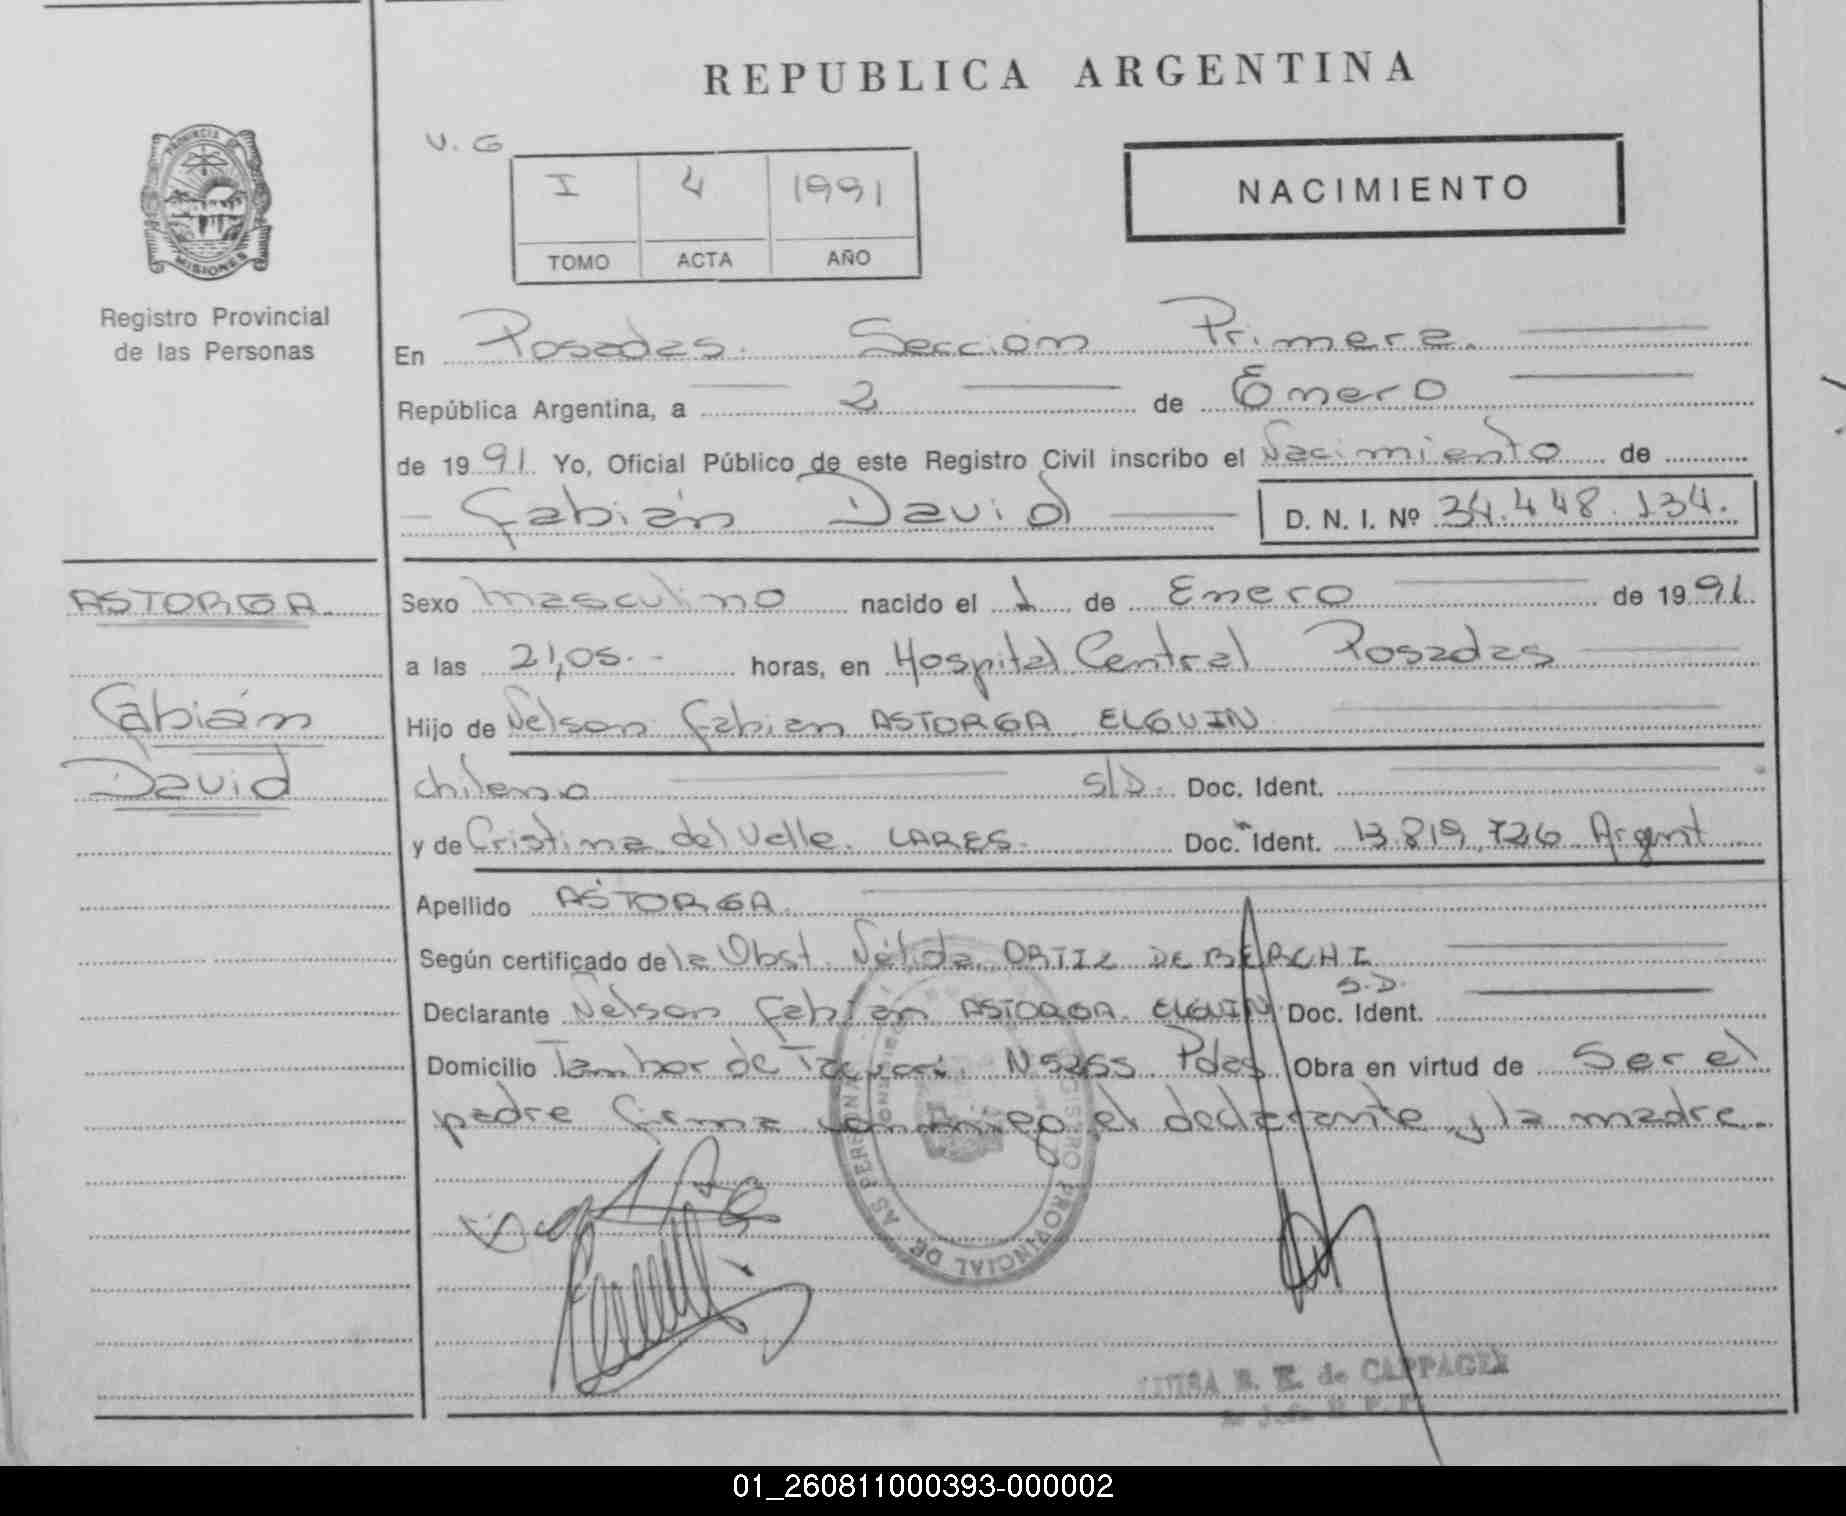 REPUBLICA ARGENTINA
V. G
I 4 1991
TOMO ACTA AÑO
NACIMIENTO
PROVINCIA
MISIONES
Registro Provincial
de las Personas
En Posadas. Sección Primera.
República Argentina, a 2 de Enero
de 1991. Yo, Oficial Público de este Registro Civil inscribo el Nacimiento de
Fabián David
D. N. I. Nº 34.448.134.
ASTORGA
Fabián
David
Sexo masculino nacido el 1 de Enero de 1991.
a las 21,05.- horas, en Hospital Central Posadas
Hijo de Nelson Fabian ASTORGA ELGUIN
chileno S/D. Doc. Ident.
y de Cristina del Valle. LARES. Doc. Ident. 13.819.726 Argent
Apellido ASTORGA.
Según certificado de la Obst. Nélida ORTIZ DE BERCHI
Declarante Nelson Fabian ASTORGA. ELGUIN Doc. Ident. S.D.
Domicilio Tambor de Tacuarí. Pdas. Obra en virtud de Ser el
padre firma conmigo el declarante y la madre.
REGISTRO PROVINCIAL DE LAS PERSONAS
E. de
01_260811000393-000002